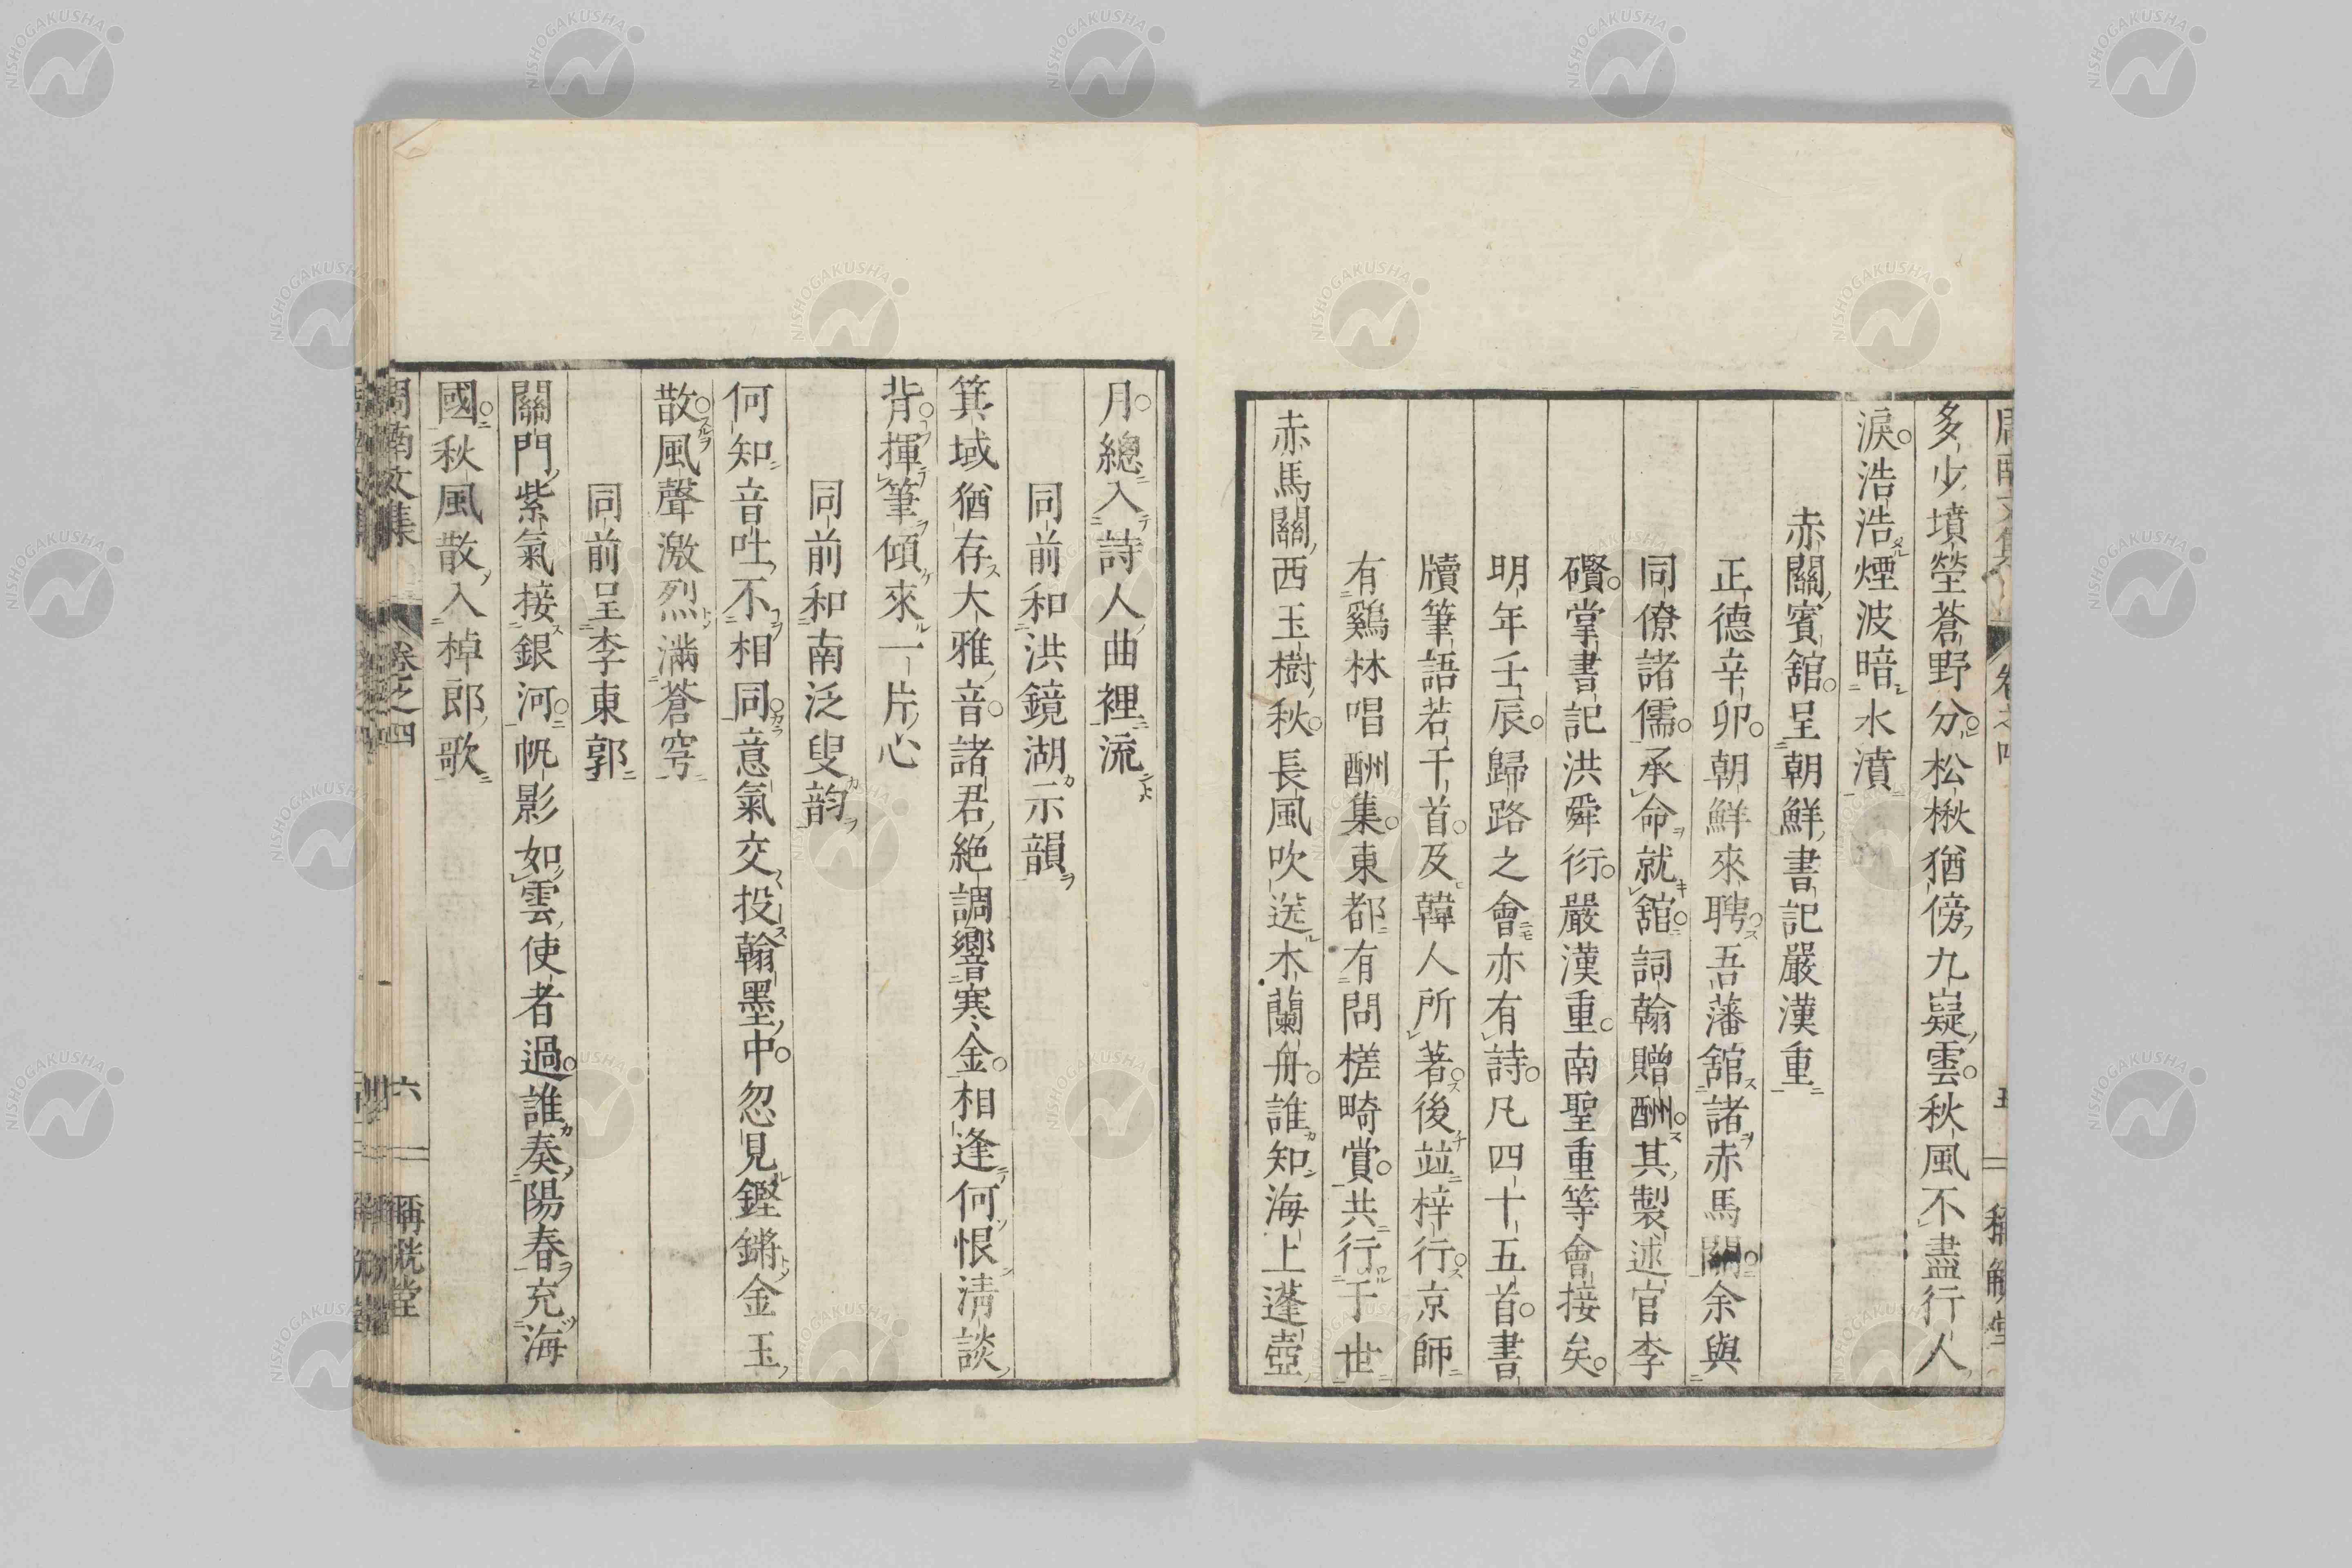 多少墳塋蒼野分松楸猶傍九嶷雲秋風不盡行人
淚浩浩煙波暗水濆
赤關賓舘呈朝鮮書記嚴漢重
正德辛卯朝鮮來聘吾藩舘諸赤馬關余與
同僚諸儒承命就舘詞翰贈酬其製述官李
礥掌書記洪舜衍嚴漢重南聖重等會接矣
明年壬辰歸路之會亦有詩凡四十五首書
牘筆語若干首及韓人所著後並梓行京師
有鷄林唱酬集東都有問槎畸賞共行于世
赤馬關西玉樹秋長風吹送木蘭舟誰知海上蓬壺
月總入詩人曲裡流
同前和洪鏡湖示韻
箕域猶存大雅音諸君絶調響寒金相逢何恨淸談
背揮筆傾來一片心
同前和南泛叟韵
何知音吐不相同意氣交投翰墨中忽見鏗鏘金玉
散風聲激烈滿蒼穹
同前呈李東郭
關門紫氣接銀河帆影如雲使者過誰奏陽春充海
國秋風散入棹郎歌
周南文集 卷之四 六